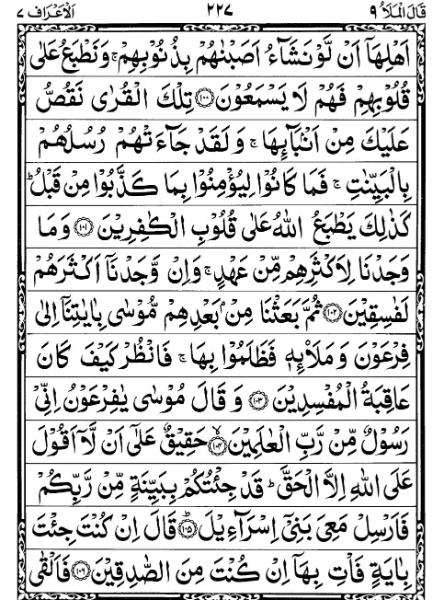 قَالَ الْمَلَاُ ٩ ٢٢٧ اَلْاَعْرَاف ٧
اَهْلِهَاۤ اَنْ لَّوْ نَشَآءُ اَصَبْنٰهُمْ بِذُنُوْبِهِمْ ۚ وَنَطْبَعُ عَلٰى
قُلُوْبِهِمْ فَهُمْ لَا يَسْمَعُوْنَ ﴿١٠٠﴾ تِلْكَ الْقُرٰى نَقُصُّ
عَلَيْكَ مِنْ اَنْۢبَآئِهَا ۚ وَلَقَدْ جَآءَتْهُمْ رُسُلُهُمْ
بِالْبَيِّنٰتِ ۚ فَمَا كَانُوْا لِيُؤْمِنُوْا بِمَا كَذَّبُوْا مِنْ قَبْلُ ؕ
كَذٰلِكَ يَطْبَعُ اللّٰهُ عَلٰى قُلُوْبِ الْكٰفِرِيْنَ ﴿١٠١﴾ وَمَا
وَجَدْنَا لِاَكْثَرِهِمْ مِّنْ عَهْدٍ ۚ وَاِنْ وَّجَدْنَاۤ اَكْثَرَهُمْ
لَفٰسِقِيْنَ ﴿١٠٢﴾ ثُمَّ بَعَثْنَا مِنْۢ بَعْدِهِمْ مُّوْسٰى بِاٰيٰتِنَاۤ اِلٰى
فِرْعَوْنَ وَمَلَا۟ئِهٖ فَظَلَمُوْا بِهَا ۚ فَانْظُرْ كَيْفَ كَانَ
عَاقِبَةُ الْمُفْسِدِيْنَ ﴿١٠٣﴾ وَقَالَ مُوْسٰى يٰفِرْعَوْنُ اِنِّىْ
رَسُوْلٌ مِّنْ رَّبِّ الْعٰلَمِيْنَ ﴿١٠٤﴾ حَقِيْقٌ عَلٰۤى اَنْ لَّاۤ اَقُوْلَ
عَلَى اللّٰهِ اِلَّا الْحَقَّ ؕ قَدْ جِئْتُكُمْ بِبَيِّنَةٍ مِّنْ رَّبِّكُمْ
فَاَرْسِلْ مَعِىَ بَنِىْۤ اِسْرَآءِيْلَ ﴿١٠٥﴾ قَالَ اِنْ كُنْتَ جِئْتَ
بِاٰيَةٍ فَاْتِ بِهَاۤ اِنْ كُنْتَ مِنَ الصّٰدِقِيْنَ ﴿١٠٦﴾ فَاَلْقٰى